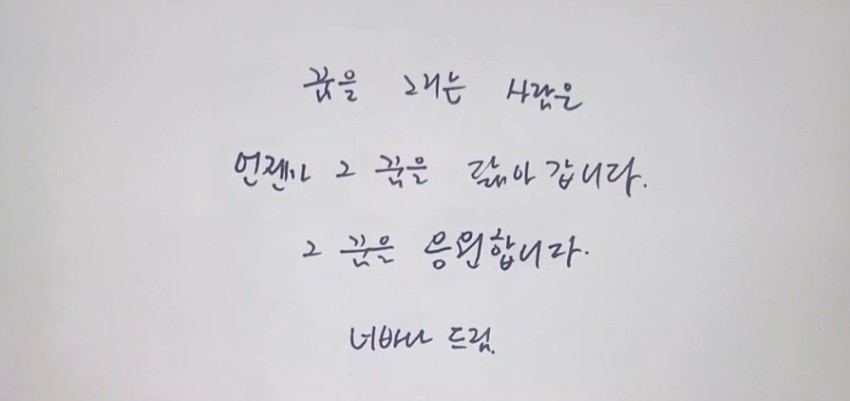 꿈을 그리는 사람은
언젠가 그 꿈을 닮아 갑니다.
그 꿈은 응원합니다.
너바나 드림.